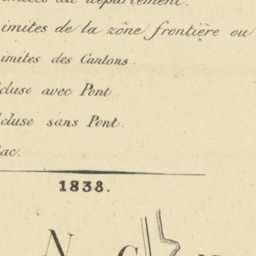 du département.
imites de la zône frontière ou
imites des Cantons.
cluse avec Pont.
cluse sans Pont.
ac.
1838.
N